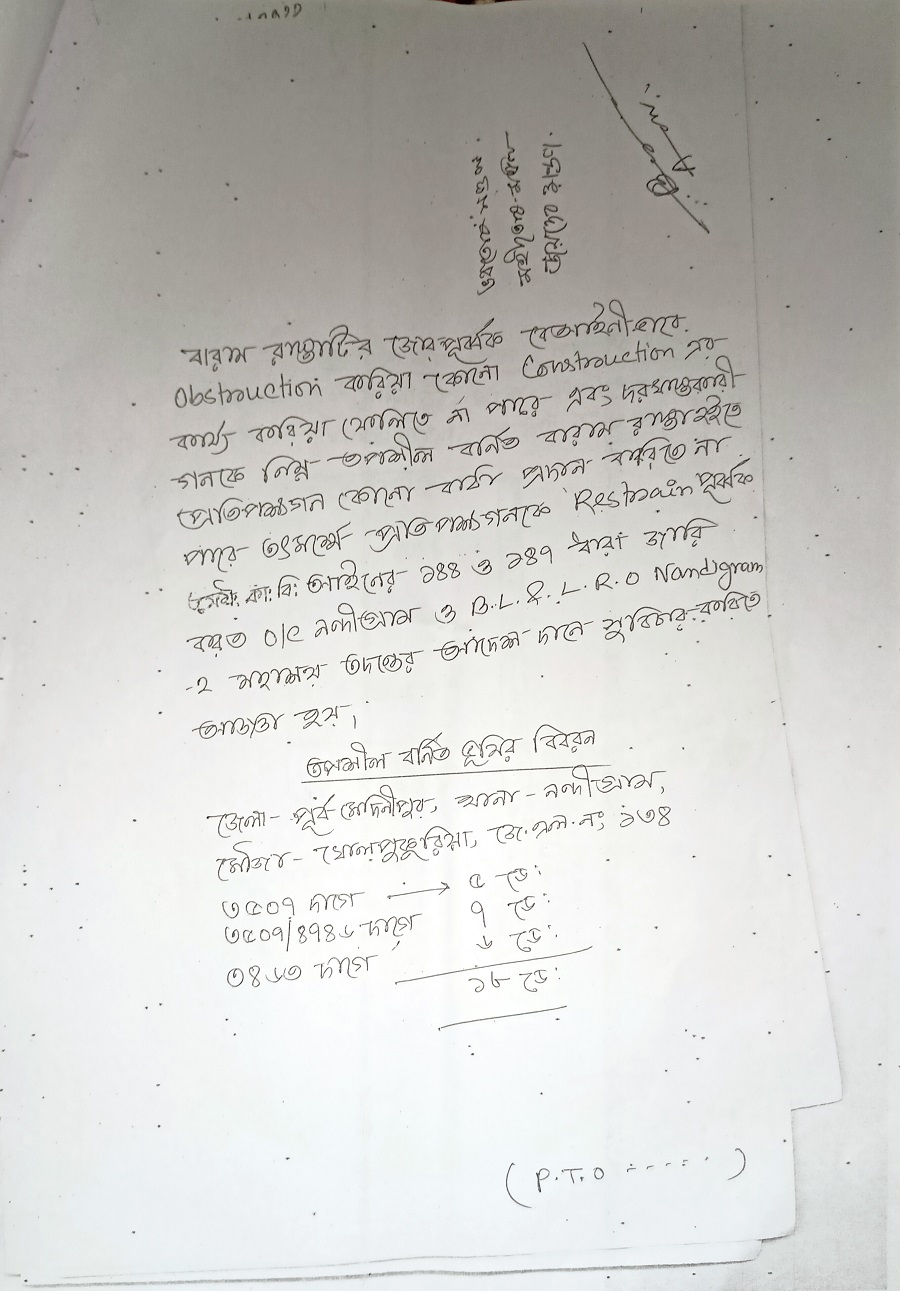 বারাম রাস্তাটির জোরপূর্ব্বক বেআইনীভাবে
Obstrouction করিয়া কোনো Constrouction এর
কার্য্য করিয়া ফেলিতে না পারে এবং দরখাস্তকারী
গনকে নিম্ন তপশীল বর্নিত বারাম রাস্তা হইতে
প্রতিপক্ষগন কোনো বাধা প্রদান করিতে না
পারে তৎমর্ম্মে প্রতিপক্ষগনকে Restrain পূর্ব্বক
কাঃ বিঃ আইনের ১৪৪ ও ১৪৭ ধারা জারি
করত O/C নন্দীগ্রাম ও B.L. & L.R.O Nandigram
-২ মহাশয় তদন্তের আদেশ দানে সুবিচার করিতে
আজ্ঞা হয়।
তপশীল বর্নিত ভূমির বিবরন
জেলা - পূর্ব মেদিনীপুর, থানা - নন্দীগ্রাম,
মৌজা - ঘোলপুকুরিয়া, জে.এল.নং ১৩৪
৩৫০৭ দাগে → ৫ ডেঃ
৩৫০৭/৪৭৪৬ দাগে ৭ ডেঃ
৩৪৬৩ দাগে ৬ ডেঃ
১৮ ডেঃ
(P.T.O ......)